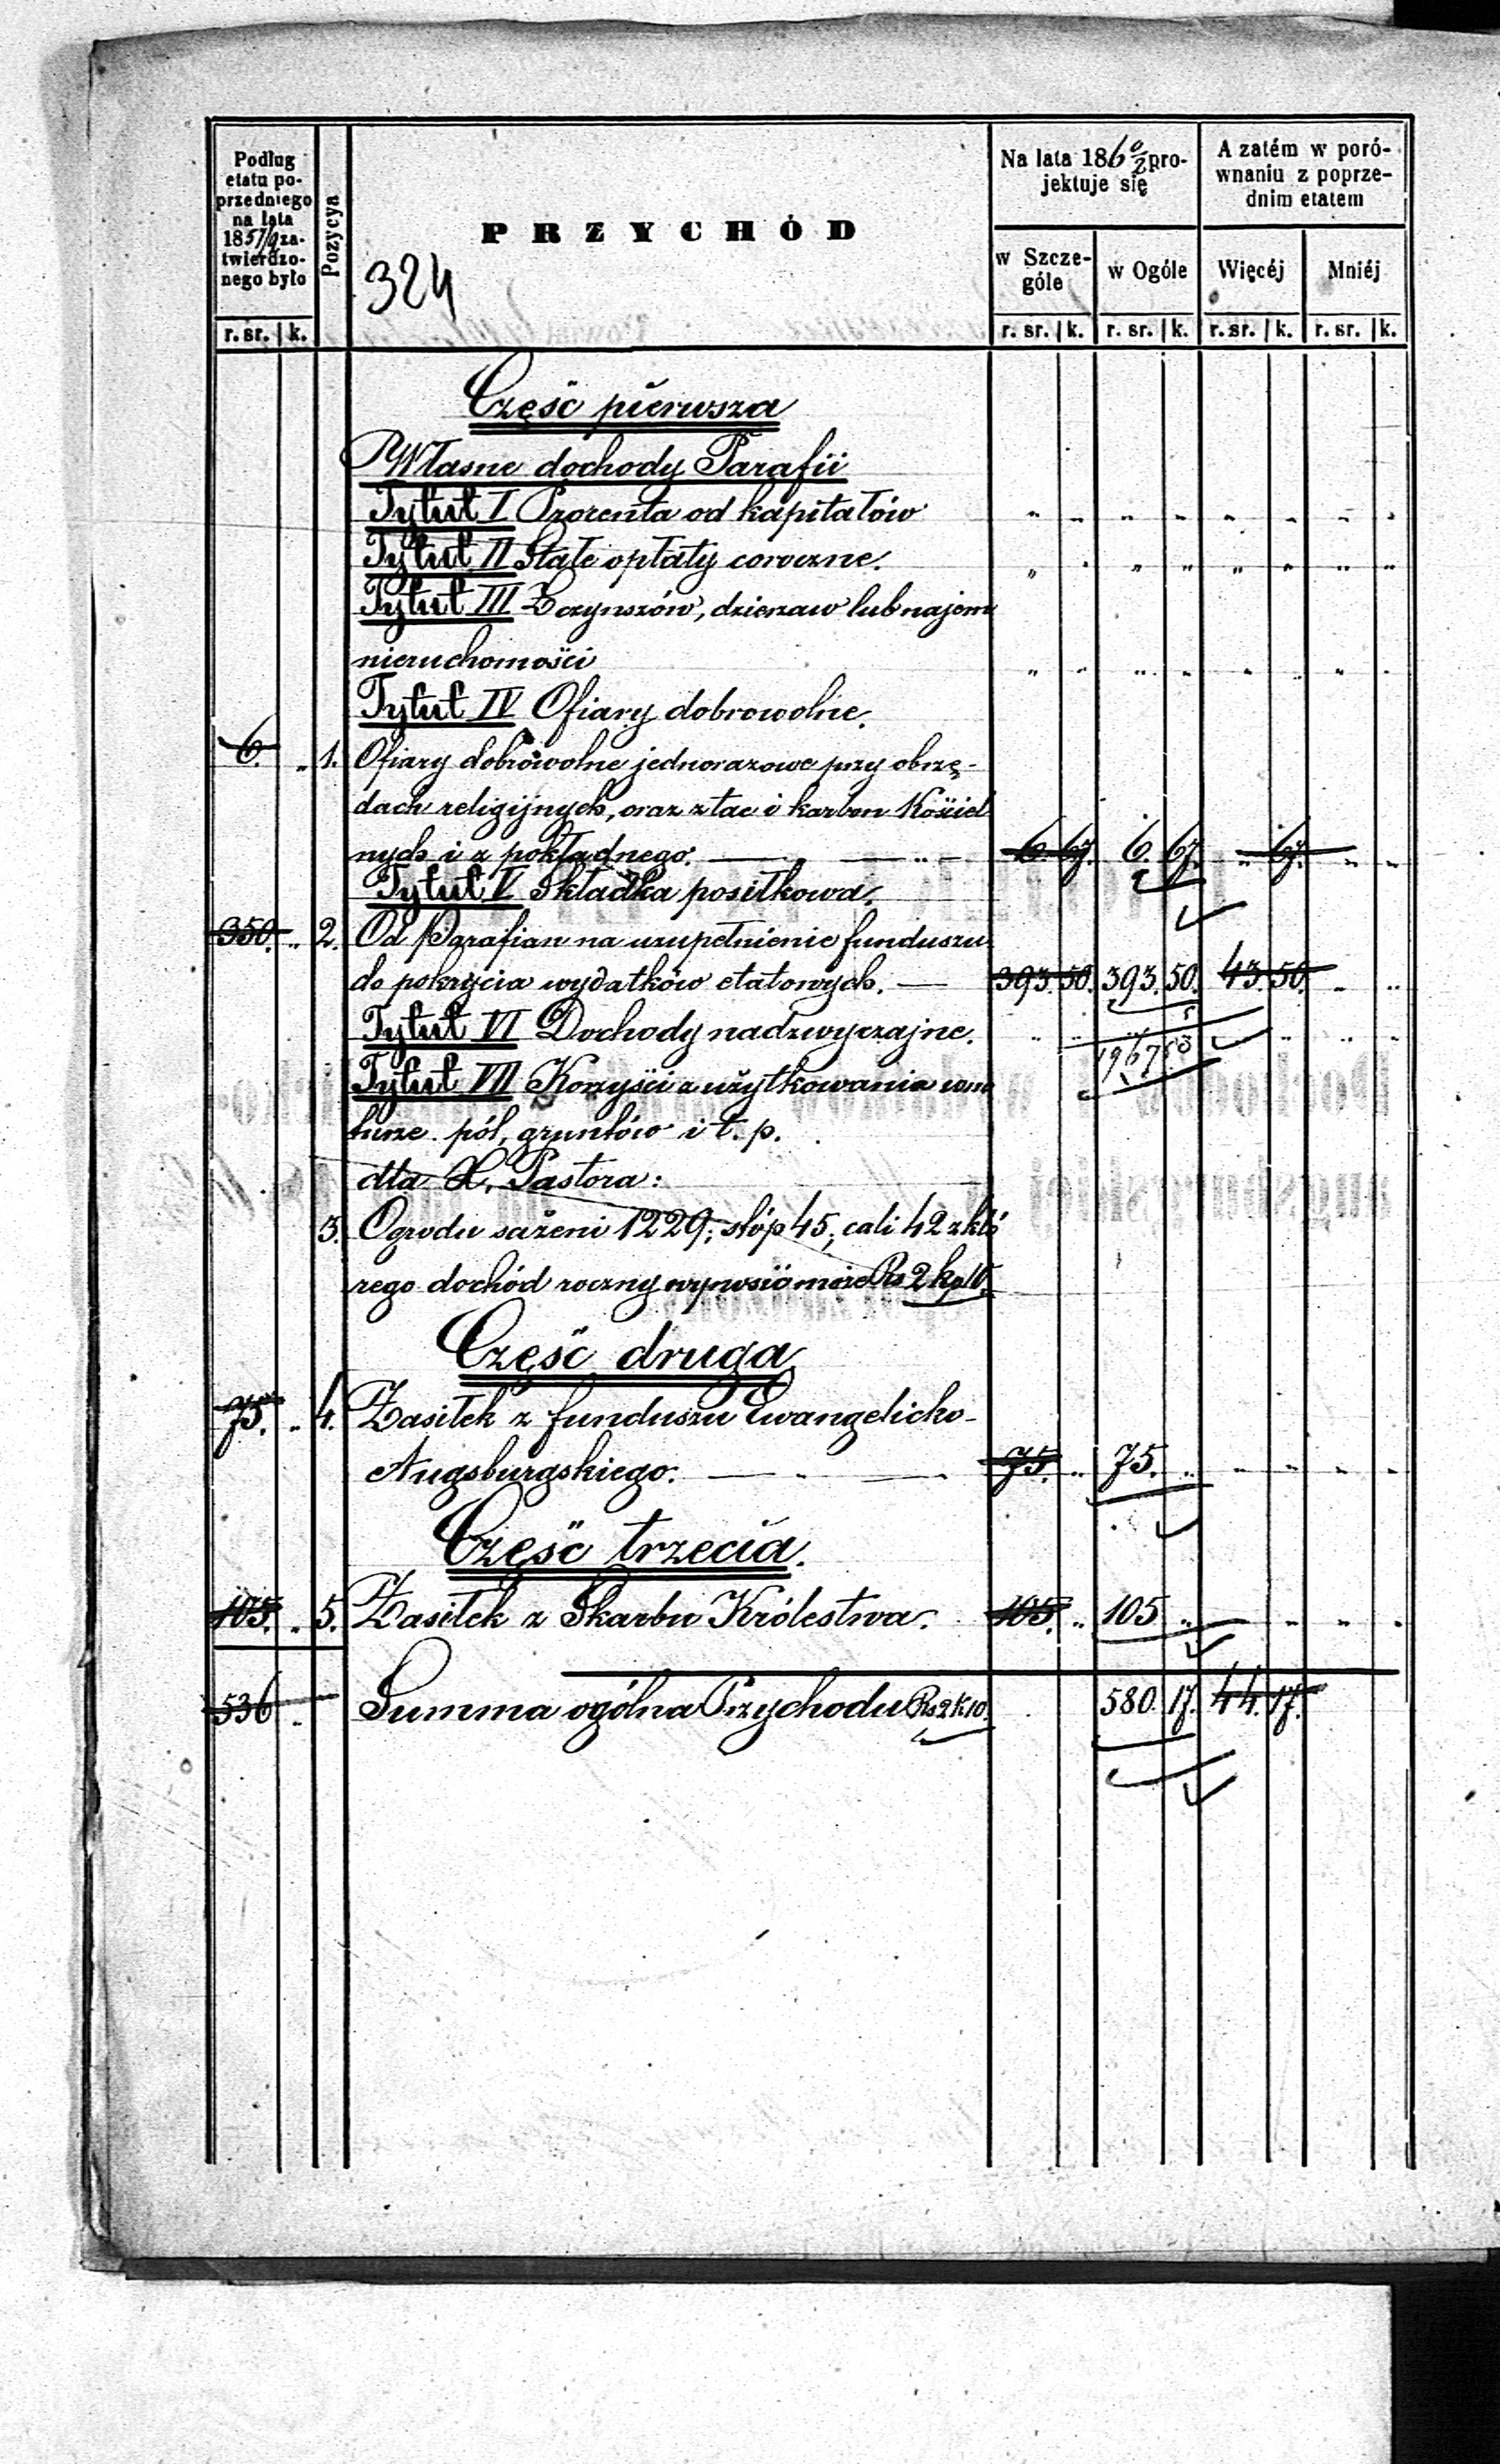 Podług etatu poprzedniego na lata 1857/9 zatwierdzonego było
Pozycya
PRZYCHÓD
324
Na lata 1860/2 projektuje się
A zatém w porównaniu z poprzednim etatem
w Szczególe
w Ogóle
Więcéj
Mniéj
r. sr. k. r. sr. k. r. sr. k. r. sr. k. r. sr. k.
Część pierwsza
Własne dochody Parafii
Tytuł I Procenta od kapitałów " " " " " " " "
Tytuł II Stałe opłaty coroczne. " " " " " " " "
Tytuł III Z czynszów, dzierzaw lub najem
nieruchomości " " " " " " " "
Tytuł IV Ofiary dobrowolne.
6. " 1. Ofiary dobrowolne jednorazowe przy obrzę-
dach religijnych, oraz z tac i karbon Kościel
nych i z pokładnego. 6 67. 6. 67. " 67. " "
Tytuł V Składka posiłkowa.
350. " 2. Od Parafian na uzupełnienie funduszu
do pokrycia wydatków etatowych. 393. 50. 393. 50. 43. 50. " "
Tytuł VI Dochody nadzwyczajne. " " " " " "
Tytuł VII Korzyści z użytkowania w na
turze pól, gruntów i t. p.
dla X. Pastora:
3. Ogrodu sażeni 1229; stóp 45, cali 42 z któ
rego dochód roczny wynosić może Rs 2 kp 10.
Część druga
75. " 4. Zasiłek z funduszu Ewangelicko-
Augsburgskiego. 75. " 75. " " " " "
Część trzecia.
105. " 5. Zasiłek z Skarbu Królestwa. 105. " 105 " " " "
536 " Summa ogólna Przychodu Rs 2 k 10. 580. 17. 44. 17.